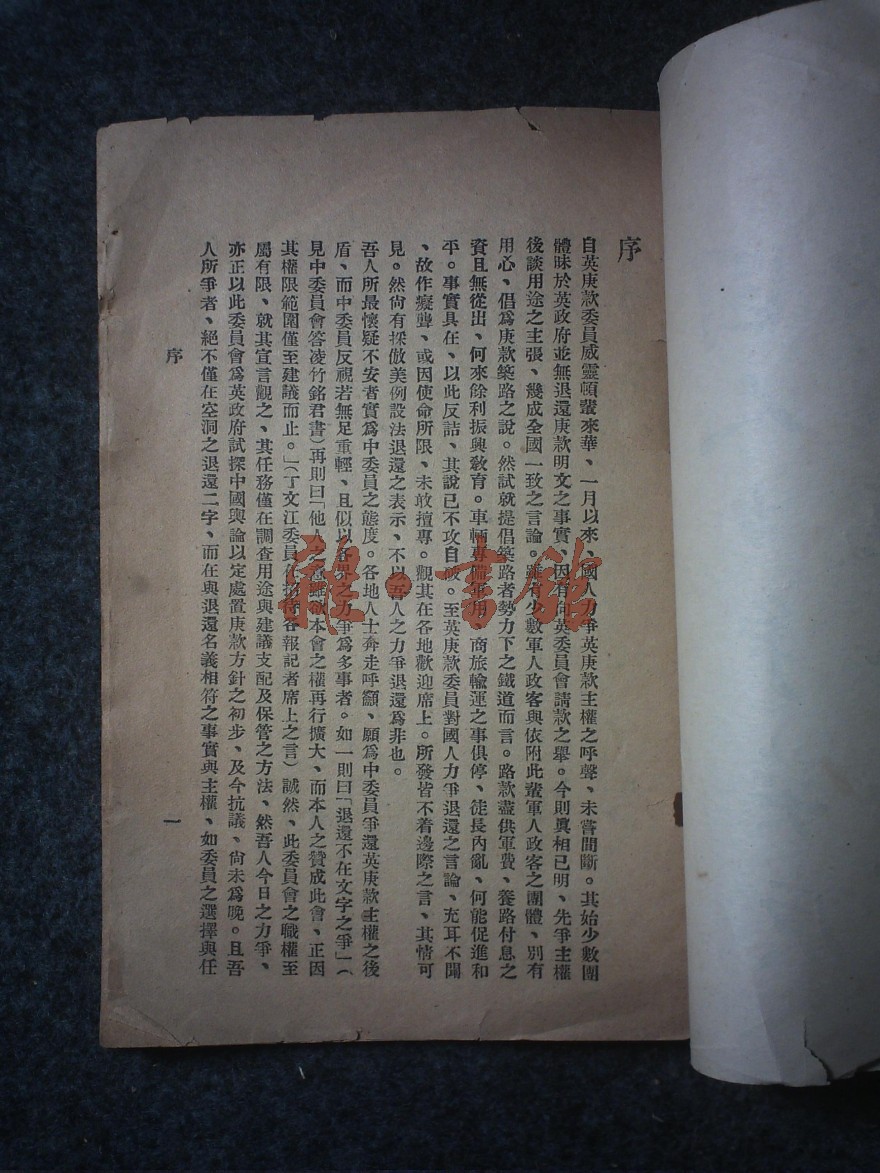 序
自英庚款委員威靈頓輩來華、一月以來、國人力爭英庚款主權之呼聲、未嘗間斷。其始少數團
體昧於英政府並無退還庚款明文之事實、因有向英委員會請款之舉。今則眞相已明、先爭主權
後談用途之主張、幾成全國一致之言論。雖有少數軍人政客與依附此輩軍人政客之團體、別有
用心、倡爲庚款築路之說。然試就提倡築路者勢力下之鐵道而言。路款盡供軍費、養路付息之
資且無從出、何來餘利振興敎育。車輛專備軍用、商旅輸運之事俱停、徒長內亂、何能促進和
平。事實具在、以此反詰、其說已不攻自破。至英庚款委員對國人力爭退還之言論、充耳不聞
、故作癡聾、或因使命所限、未敢擅專。觀其在各地歡迎席上。所發皆不着邊際之言、其情可
見。然尙有採倣美例設法退還之表示、不以吾人之力爭退還爲非也。
吾人所最懷疑不安者實爲中委員之態度。各地人士奔走呼籲、願爲中委員爭還英庚款主權之後
盾、而中委員反視若無足重輕、且似以各界之力爭爲多事者。如一則曰「退還不在文字之爭」(
見中委員會答凌竹銘君書)再則曰「他人之意雖欲本會之權再行擴大、而本人之贊成此會、正因
其權限範圍僅至建議而止。」(丁文江委員在招待各報記者席上之言)誠然、此委員會之職權至
屬有限、就其宣言觀之、其任務僅在調查用途與建議支配及保管之方法、然吾人今日之力爭、
亦正以此委員會爲英政府試探中國輿論以定處置庚款方針之初步、及今抗議、尙未爲晚。且吾
人所爭者、絕不僅在空洞之退還二字、而在與退還名義相符之事實與主權、如委員之選擇與任
序
一
雜·书馆